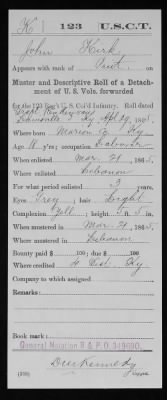 K | 123 | U.S.C.T.
John Kirk
Appears with rank of Priv.
Muster and Descriptive Roll of a Detach-
ment of U. S. Vols. forwarded
for the 123 Reg't U.S. Col'd Infantry. Roll dated
Louisville Ky Apl 29, 1865.
Where born Marion Co Ky
Age 18 y'rs; occupation Laborer
When enlisted Mar. 21, 1865.
Where enlisted Lebanon
For what period enlisted 3 years.
Eyes Grey; hair Light
Complexion Yell; height 5 ft. 5 in.
When mustered in Mar. 21, 1865.
Where mustered in Lebanon
Bounty paid $ 100; due $ 100
Where credited 4 Dist. Ky
Company to which assigned
Remarks:
Book mark:
General Notation R & P. O. 949690.
Kennedy
Copyist.